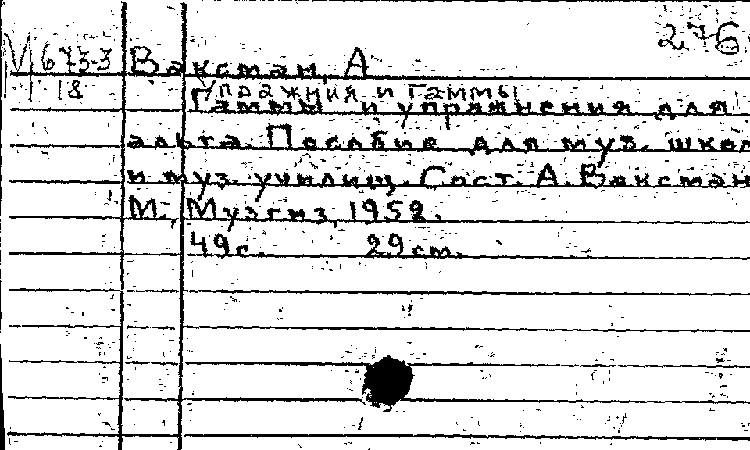 276
М 673-3 Ваксман, А
18 Упражния и Гаммы
Гаммы и упражнения для
альта. Пособие для муз. школ
и муз. училищ. Сост. А. Ваксман
М., Музгиз, 1952.
49с. 29 cm.